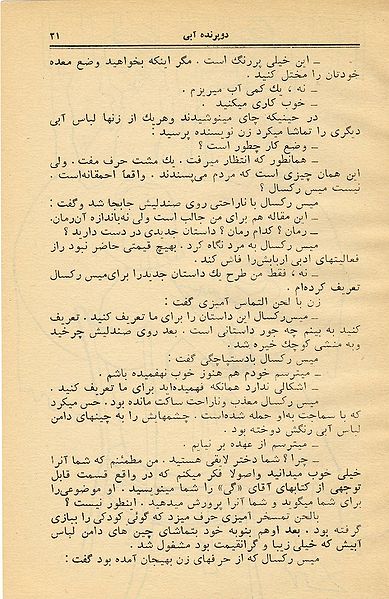 دوپرنده آبی
۲۱
ـ این خیلی پررنگ است . مگر اینکه بخواهید وضع معده
خودتان را مختل کنید .
ـ نه ، یك کمی آب میریزم .
ـ خوب کاری میکنید .
در حینیکه چای مینوشیدند وهریك از زنها لباس آبی
دیگری را تماشا میکرد زن نویسنده پرسید :
ـ وضع کار چطور است ؟
ـ همانطور که انتظار میرفت . یك مشت حرف مفت . ولی
این همان چیزی است که مردم می‌پسندند . واقعاً احمقانه‌است .
نیست میس رکسال ؟
میس رکسال با ناراحتی روی صندلیش جابجا شد وگفت :
ـ این مقاله هم برای من جالب است ولی نه‌باندازه آن‌رمان.
ـ رمان ؟ کدام رمان ؟ داستان جدیدی در دست دارید ؟
میس رکسال به مرد نگاه کرد . بهیچ قیمتی حاضر نبود راز
فعالیتهای ادبی اربابش‌را فاش کند .
ـ نه ، فقط من طرح یك داستان جدیدرا برای‌میس رکسال
تعریف کرده‌ام .
زن با لحن التماس آمیزی گفت :
ـ میس‌رکسال این داستان را برای ما تعریف کنید . تعریف
کنید به بینم چه جور داستانی است . بعد روی صندلیش چرخید
وبه منشی کوچك خیره شد .
میس رکسال بادستپاچگی گفت :
ـ میترسم خودم هم هنوز خوب نفهمیده باشم .
ـ اشکالی ندارد همانکه فهمیده‌اید برای ما تعریف کنید .
میس رکسال معذب وناراحت ساکت مانده بود . حس میکرد
که با سماجت به‌او حمله شده‌است . چشمهایش را به چینهای دامن
لباس آبی رنگش دوخته بود .
ـ میترسم از عهده بر نیایم .
ـ چرا ؟ شما دختر لایقی هستید . من مطمئنم که شما آنرا
خیلی خوب میدانید واصولا فکر میکنم که در واقع قسمت قابل
توجهی از کتابهای آقای «گی» را شما مینویسید . او موضوعی‌را
برای شما میگوید و شما آنرا پرورش میدهید . اینطور نیست ؟
بالحن تمسخر آمیزی حرف میزد که گوئی کودکی را ببازی
گرفته بود . بعد اوهم بنوبه خود بتماشای چین های دامن لباس
آبیش که خیلی زیبا و گرانقیمت بود مشغول شد .
میس رکسال که از حرفهای زن بهیجان آمده بود گفت :